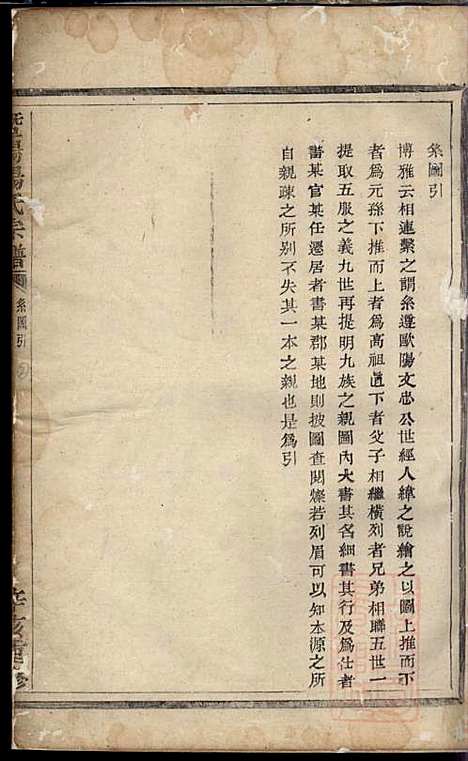 系圖引
博雅云相連繫之謂系遵歐陽文忠公世經人緯之說繪之以圖上推而下
者為元孫下推而上者為高祖直下者父子相繼橫列者兄弟相聯五世一
提取五服之義九世再提明九族之親圖內大書其名細書其行及為仕者
書某官某任遷居者書某郡某地則披圖查閱燦若列眉可以知本源之所
自親疎之所別不失其一本之親也是為引
暨陽楊氏宗譜
系圖引
辛亥重修